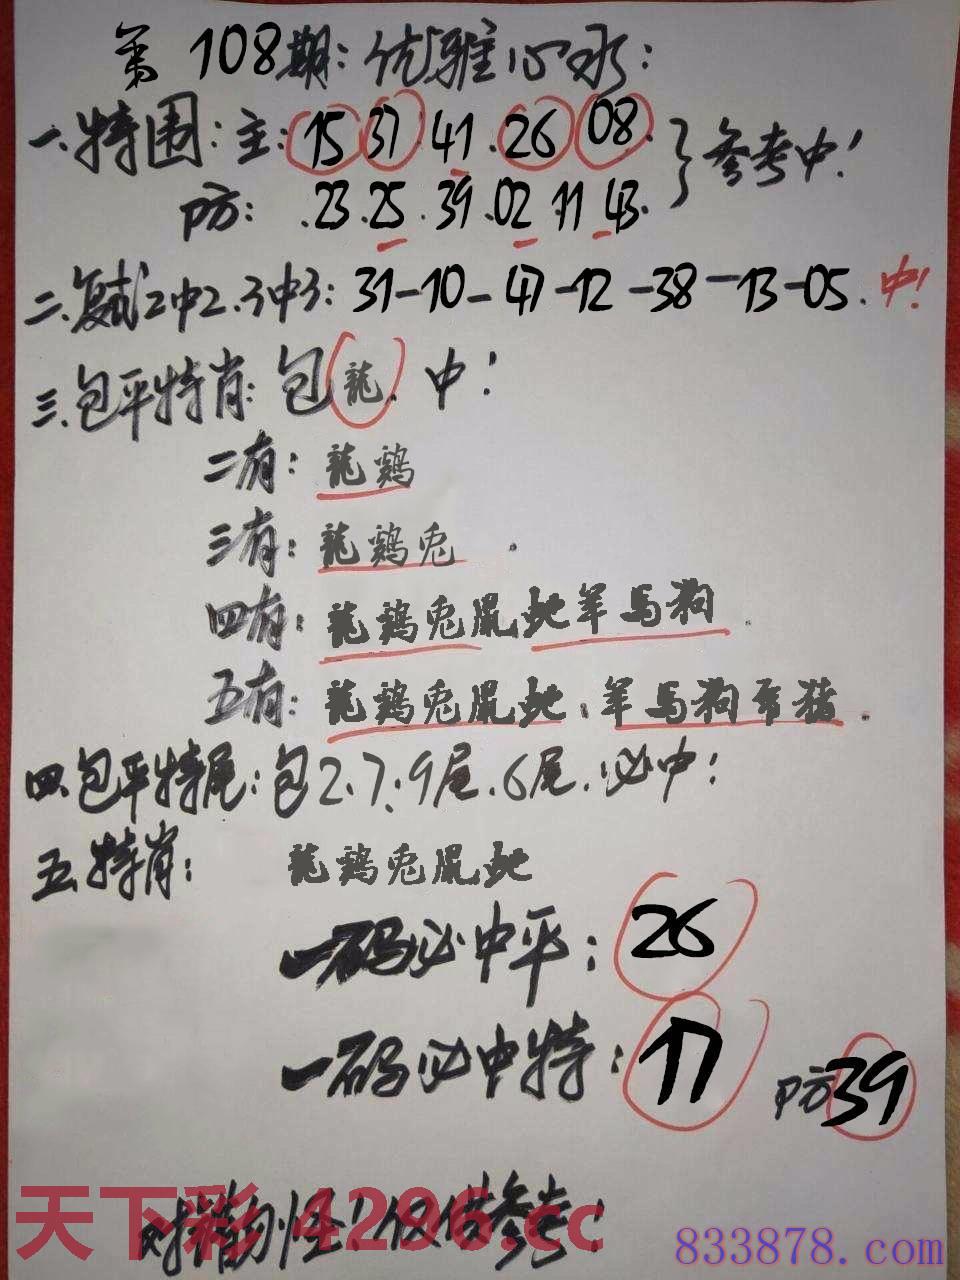 第108期:优雅心水:
一.特围:主:15 37 41.26 08.
参考中!
防:.23.25.39.02 11 43.
二.复试2中2.3中3:31-10-47-12-38-13-05.中!
三.包平特肖:包龍.中!
二有:龍鶏
三有:龍鶏兎.
四有:龍鶏兎鼠蛇羊马狗.
五有:龍鶏兎鼠蛇羊马狗 猪.
四.包平特尾:包2.7.9尾.6尾.必中:
五.特肖: 龍鶏兎鼠蛇
一码必中平:26
一码必中特:17 防39
仅供参考!
天下彩 4296.cc
833878.com